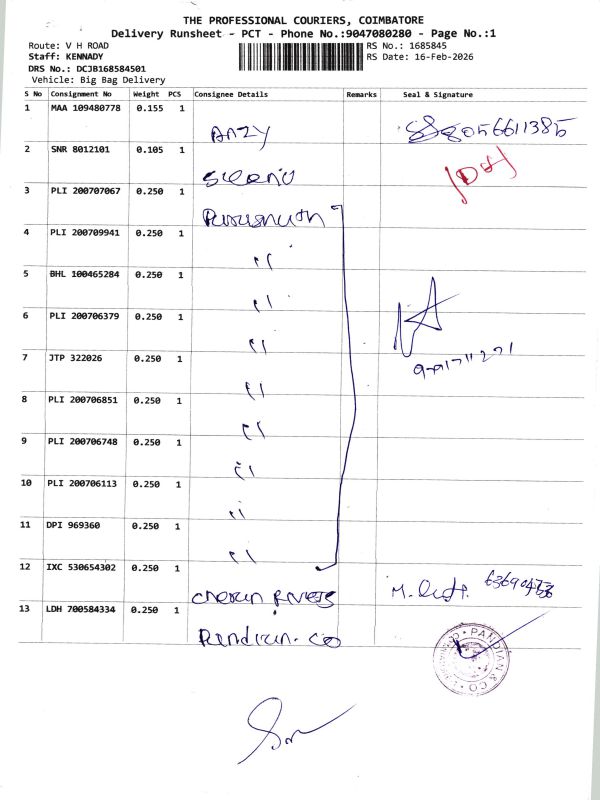 THE PROFESSIONAL COURIERS, COIMBATORE
Delivery Runsheet - PCT - Phone No.:9047080280 - Page No.:1
Route: V H ROAD
RS No.: 1685845
Staff: KENNADY
RS Date: 16-Feb-2026
DRS No.: DCJB168584501
Vehicle: Big Bag Delivery
S No Consignment No Weight PCS Consignee Details Remarks Seal & Signature
1 MAA 109480778 0.155 1
Anzy 8056611385
2 SNR 8012101 0.105 1
3 PLI 200707067 0.250 1
4 PLI 200709941 0.250 1
"
5 BHL 100465284 0.250 1
"
6 PLI 200706379 0.250 1
"
7 JTP 322026 0.250 1
"
8 PLI 200706851 0.250 1
"
9 PLI 200706748 0.250 1
"
10 PLI 200706113 0.250 1
"
11 DPI 969360 0.250 1
"
12 IXC 530654302 0.250 1
13 LDH 700584334 0.250 1
Pandian. co
PANDIAN & CO